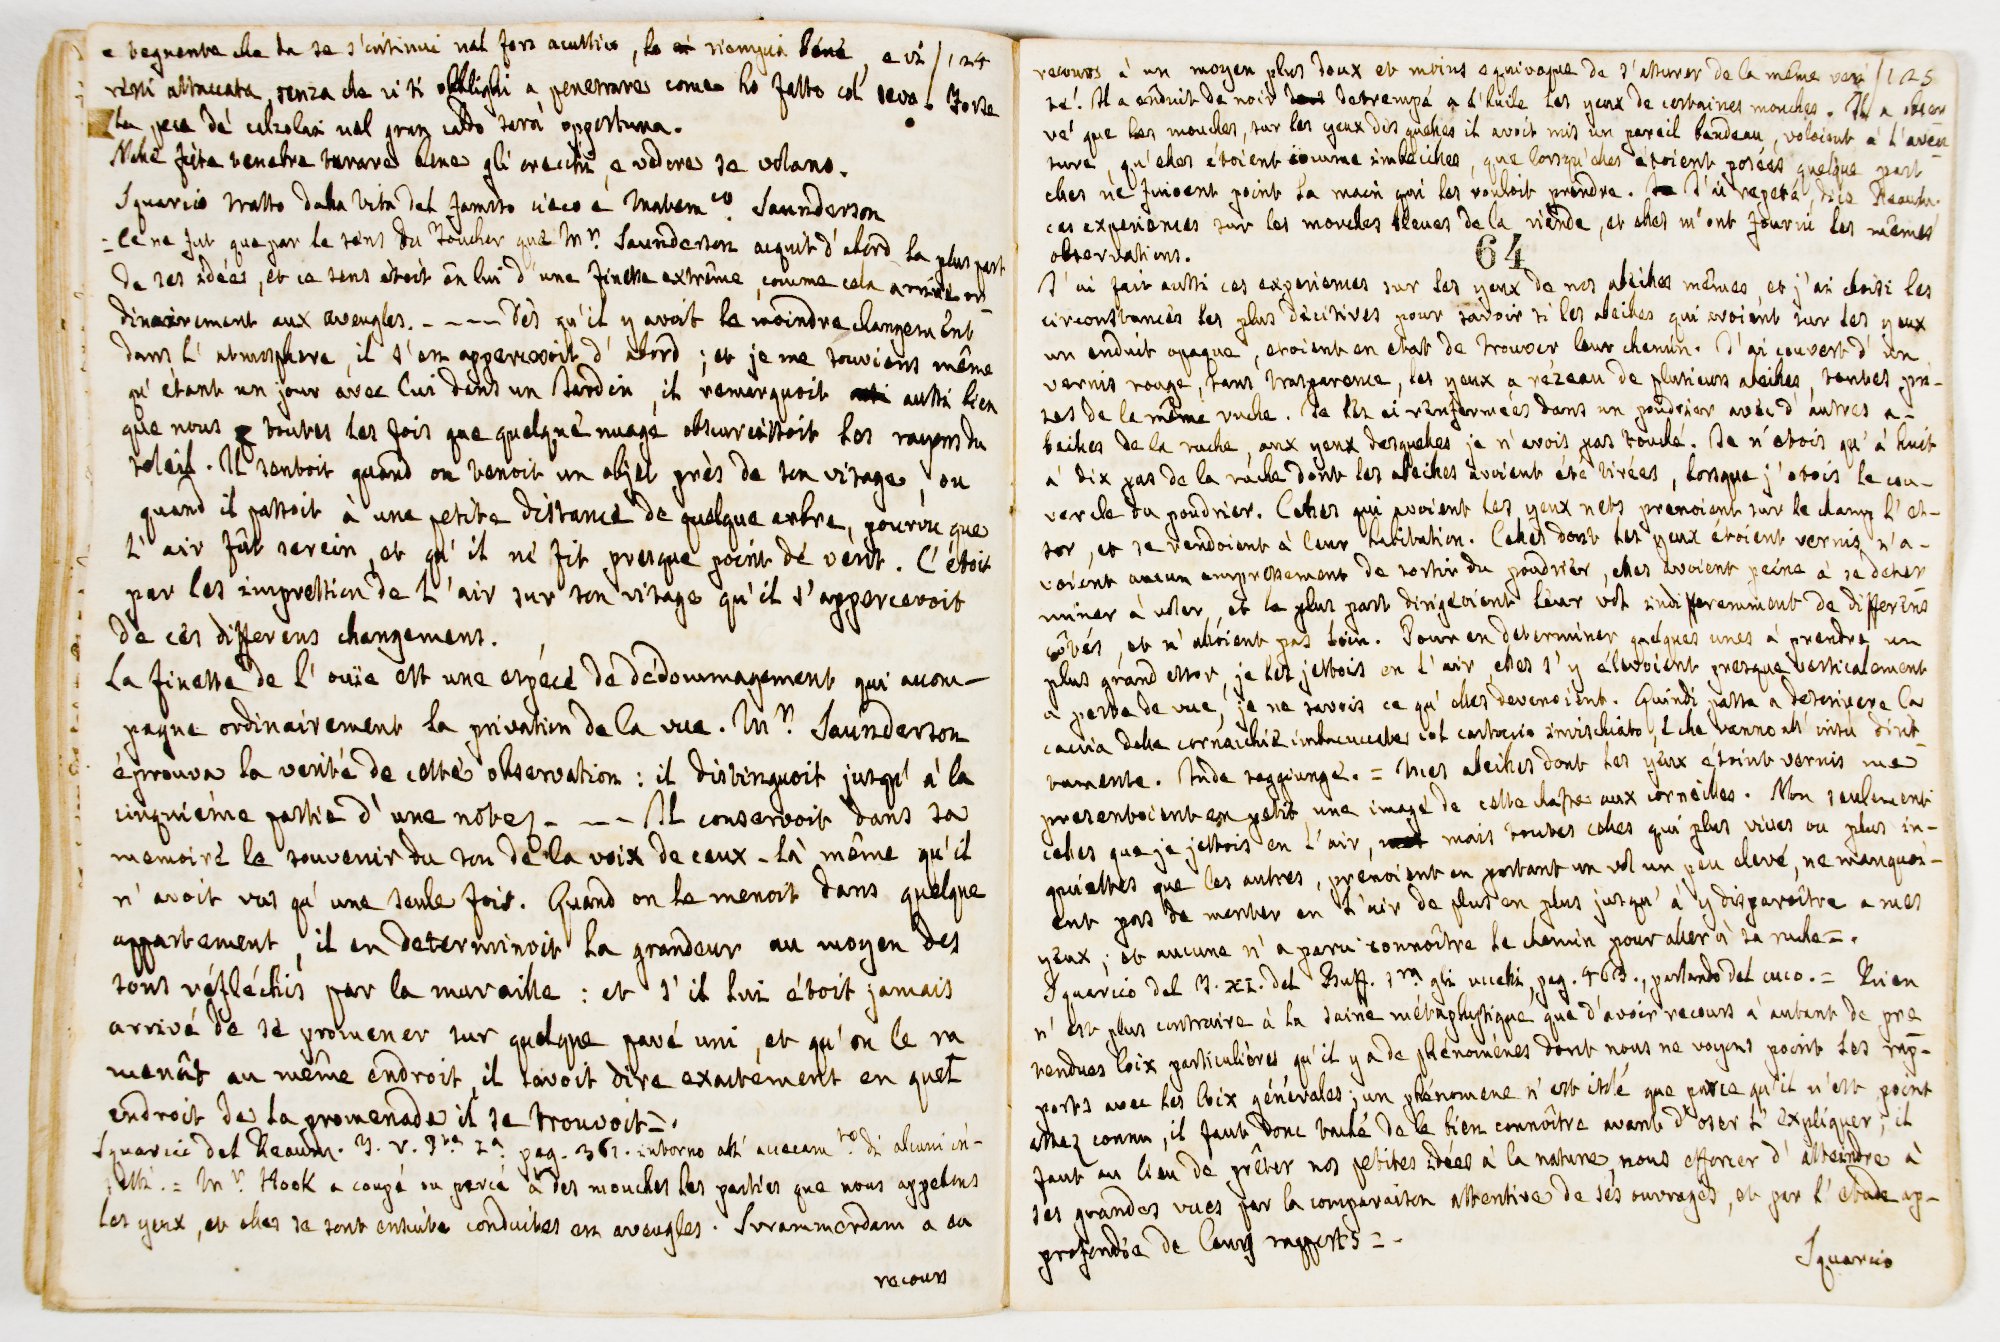 e tegnente che la se s'continui nel fors acustico, lo riempia bene, e vi /124
resti attaccata, senza che ci si obblighi a penetrare come ho fatto col sevo. Forse
la pece de' calzolai nel gran caldo sarà opportuna.
Nelle fitte tenebre turare bene gli orecchi, e vedere se volano.
Squarcio tratto dalla vita del famoso cieco e Matemco. Saunderson
= Ce ne fut que par le sens du toucher que Mr. Saunderson acquit d'abord la plus part
de ses idées, et ce sens étoit en lui d'une finesse extrême, comme cela arrive or-
dinairement aux aveugles. - - - - Dès qu'il y avoit le moindre changement
dans l'atmosphere, il s'en appercevoit d'abord; et je me souviens même
qu'étant un jour avec lui dans un Jardin, il remarquoit aussi bien
que nous toutes les fois que quelque nuage obscurcissoit les rayons du
soleil. Il sentoit quand on tenoit un objet près de son visage, ou
quand il passoit à une petite distance de quelque arbre, pourvu que
l'air fût serein, et qu'il ne fit presque point de vent. C'étoit
par les impression de l'air sur son visage qu'il s'appercevoit
de ces differens changement.
La finesse de l'ouïe est une espéce de dédommagement qui accom-
pagne ordinairement la privation de la vue. Mr. Saunderson
éprouva la verité de cette observation: il distinguoit jusqu'à la
cinquiéme partie d'une note; - - - Il conservoit dans sa
memoire le souvenir du son de la voix de ceux-là même qu'il
n'avoit vus qu'une seule fois. Quand on le menoit dans quelque
appartement, il en determinoit la grandeur au moyen des
sons réfléchis par la muraille: et s'il lui étoit jamais
arrivé de se promener sur quelque pavé uni, et qu'on le ra
menât au même endroit, il savoit dire exactement en quel
endroit de la promenade il se trouvoit=.
Squarcio del Reaum. T. V. Pte 2a pag. 361. intorno all'acciecamto di alcuni in-
setti. = Mr. Hook a coupé ou percé à des mouches les parties que nous appelons
les yeux, et elles se sont ensuite conduites en aveugles. Swammerdam a eu
recours
recours à un moyen plus doux et moins equivoque de s'assurer de la même veri /125
té. Il a enduit de noir detrempé a l'huile les yeux de certaines mouches. Il a obser
vé que les mouches, sur les yeux des quelles il avoit mis un pareil bandeau, voloient à l'aven-
ture, qu'elles étoient comme imbeciles, que lorsqu'elles étoient posées quelque part
elles ne fuioent point la main qui les vouloit prendre. J'ai repeté, dice Reaum.
ces experiences sur les mouches bleues de la viende, et elles m'ont fourni les mêmes
observations.
64
J'ai fait aussi ces experiences sur les yeux de nos abeilles mêmes, et j'ai choisi les
circonstances les plus décisives pour savoir si les abeilles qui avoient sur les yeux
un enduit opaque, etoient en etat de trouver leur chemin. J'ai couvert d'un
vernis rouge, sans trasparence, les yeux a rézeau de plusieurs abeilles, toutes pri-
ses de la même ruche. Je les ai renfermées dans un poudrier avec d'autres a-
beilles de la ruche, aux yeux desquelles je n'avois pas touché. Je n'etois qu'à huit
à dix pas de la ruche dont les abeilles avoient été tirées, lorsque j'otois le cou-
vercle du poudrier. Celles qui avoient les yeux nets prenoient sur le champ l'es-
sor, et se rendoient à leur habitation. Celles dont les yeux étoient vernis, n'a-
voient aucun empressement de sortir du poudrier, elles avoient peine à se deter
miner à voler, et la plus part dirigeoient leur vol indifferemment de differens
côtés, et n'alloient pas loin. Pour en determiner quelques unes à prendre un
plus grand essor, je les jettois en l'air, elles s'y élevoient presque verticalement
a perte de vue, je ne savois ce qu'elles devenoient. Quindi passa a descrivere la
caccia delle cornacchie imbacuccate col cartoccio invischiato, e che vanno all'insù dirit-
tamente. Inde soggiunge. = Mes abeilles dont les yeux étoint vernis me
presentoient en petit une image de cette chasse aux corneilles. Non seulement
celles que je jettois en l'air, mais toutes celles qui plus vives ou plus in-
quiettes que les autres, prenoient en partant un vol un peu elevé, ne manquoi-
ent pas de monter en l'air de plus en plus jusqu'à y disparoître a mes
yeux; et aucune n'a paru connoître le chemin pour aller à sa ruche=.
Squarcio del T. XI. del Buff. sra. gli uccelli, pag. 463., parlando del cuco. = Rien
n'est plus contraire à la saine métaphysique que d'avoir recours à autant de pre
tendues loix particulières qu'il y a de phénomènes dont nous ne voyons point les rap-
ports avec les loix générales; un phénomene n'est isolé que parce qu'il n'est point
assez connu, il faut donc taché de le bien connoître avant d'oser l'expliquer; il
faut au lieu de prêter nos petites idées à la nature, nous efforcer d'atteindre à
ses grandes vues par la comparaison attentive de ses ouvrages, et par l'etude ap-
profondie de leurs rapports = .
Squarcio